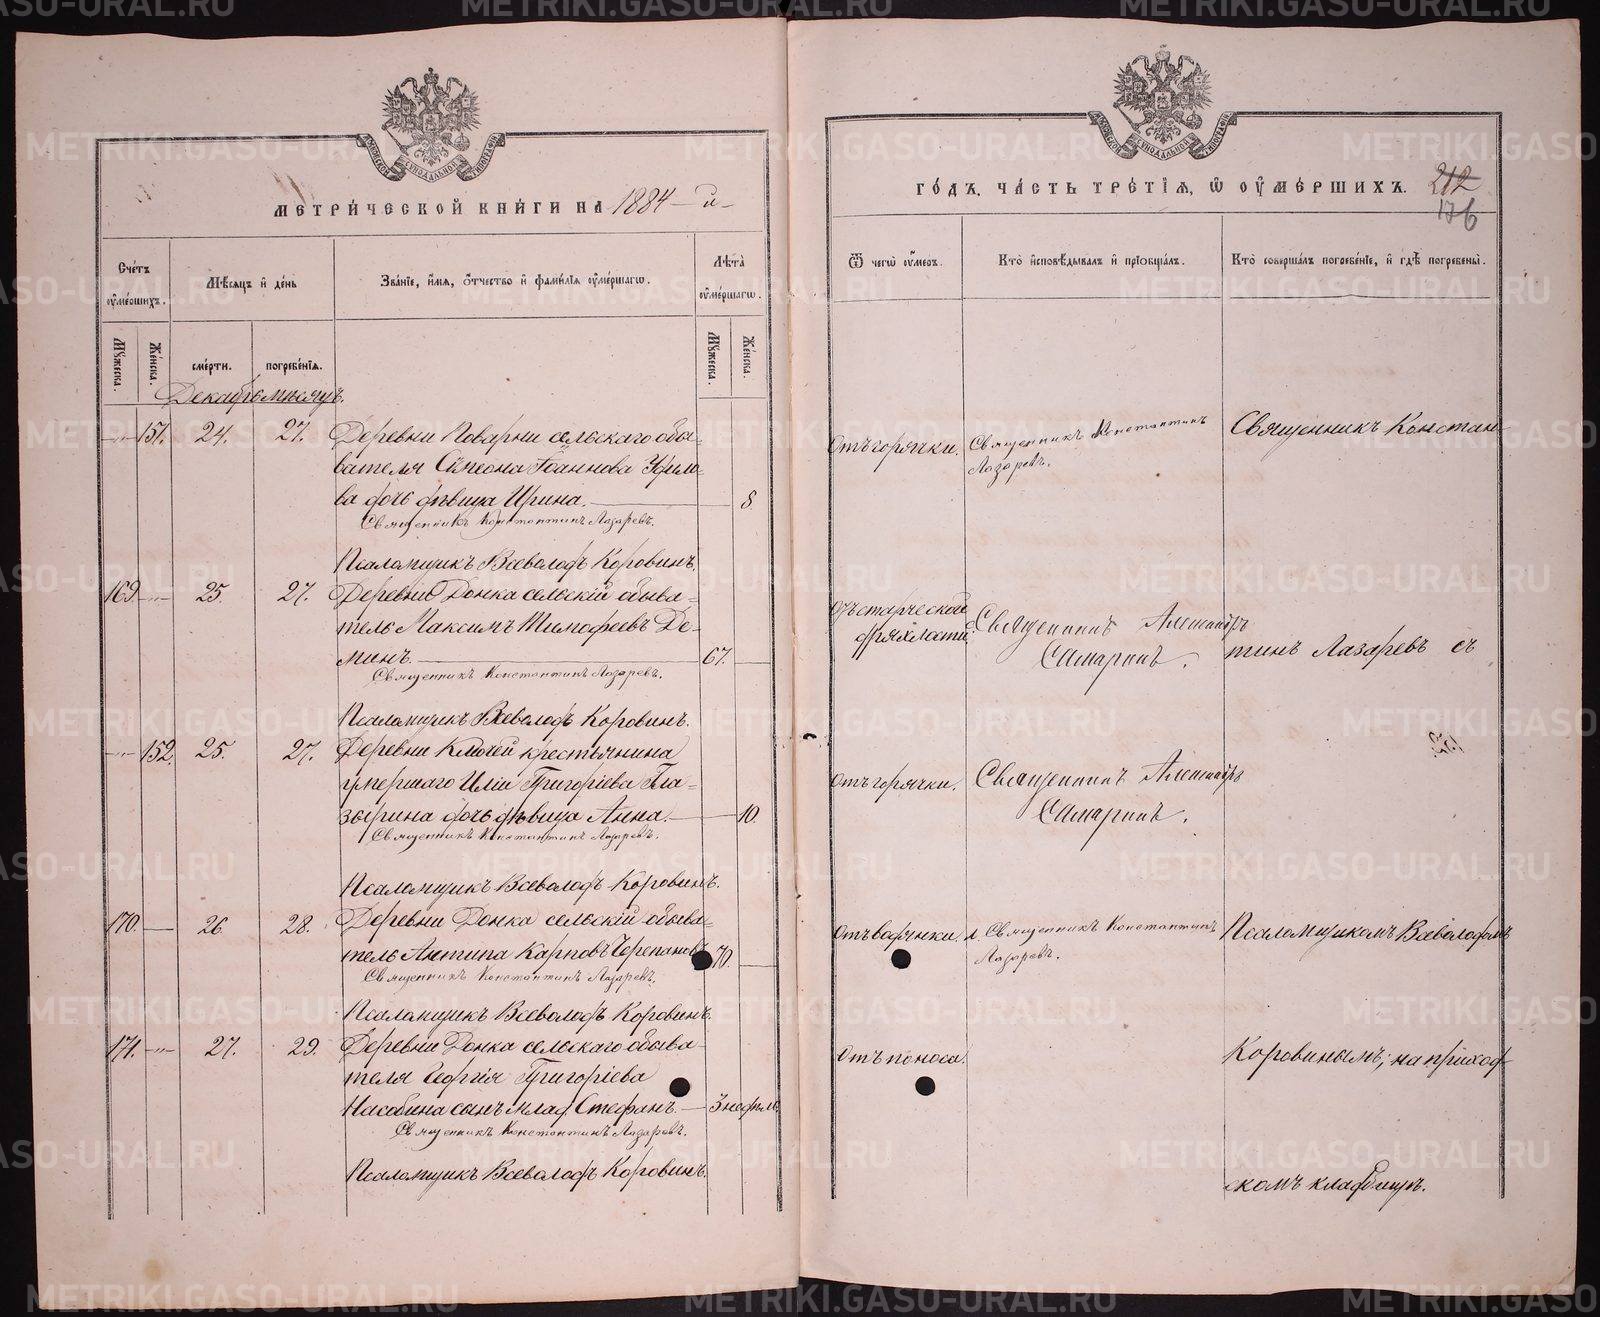 МЕТРИ́ЧЕСКОЙ КНИ́ГИ НА 1884 й
Сче́тъ ᲂу҆ме́ршихъ.
Мѣ́сѧцъ и҆ де́нь
Зва́нїе, и҆́мѧ, ѻ҆́тчество и҆ фами́лїѧ ᲂу҆ме́ршагѡ.
Лѣ́та ᲂу҆ме́ршагѡ.
Мꙋ́жеска.
Же́нска.
сме́рти.
погребе́нїѧ.
Мꙋ́жеска.
Же́нска.
Декабрь мѣсяцъ.
151. 24. 27. Деревни Поварни сельскаго обы-
вателя Симеона Іоаннова
ва дочь дѣвица Ирина. 8
Священникъ Константинъ Лазаревъ.
Псаломщикъ Всеволодъ Коровинъ.
169. 25. 27. Деревни Донка сельскій обыва-
тель Максимъ Тимофеевъ Де-
минъ. 67.
Священникъ Константинъ Лазаревъ.
Псаломщикъ Всеволодъ Коровинъ.
152. 25. 27. Деревни Ключей крестьянина
умершаго Иліи Григоріева Гла-
зырина дочь дѣвица Анна. 10.
Священникъ Константинъ Лазаревъ.
Псаломщикъ Всеволодъ Коровинъ.
170. 26. 28. Деревни Донка сельскій обыва-
тель Антипа Карповъ Черепановъ 70.
Священникъ Константинъ Лазаревъ.
Псаломщикъ Всеволодъ Коровинъ.
171. 27. 29. Деревни Донка сельскаго обыва-
теля Георгія Григоріева
Насобина сынъ млад. Стефанъ. 3 недѣль
Священникъ Константинъ Лазаревъ.
Псаломщикъ Всеволодъ Коровинъ.
ГО́ДЪ, ЧА́СТЬ ТРЕ́ТЇѦ, Ѡ҆ ОУ҆МЕ́РШИХЪ. 212
176
Ѿ чегѡ̀ ᲂу҆́меръ.
Кто̀ и҆сповѣ́дывалъ и҆ прїобща́лъ.
Кто̀ соверша́лъ погребе́нїе, и҆ гдѣ̀ погребены̀.
Отъ горячки. Священникъ Константинъ
Лазаревъ.
Священникъ Констан-
Отъ старческой
дряхлости. Священникъ Александръ
Самаринъ.
тинъ Лазаревъ съ
Отъ горячки. Священникъ Александръ
Самаринъ.
Отъ водянки. Священникъ Константинъ
Лазаревъ.
Псаломщикомъ Всеволодомъ
Отъ поноса.
Коровинымъ; на приход-
скомъ кладбищѣ.
METRIKI.GASO-URAL.RU